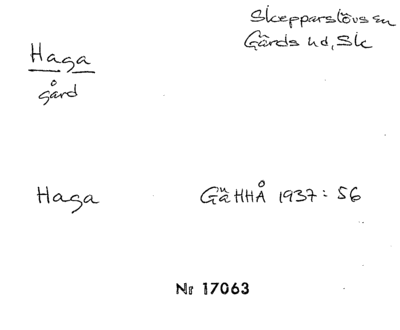 Skepparslövs sn
Gärds hd, Sk
Haga
gård
Haga GäHHÅ 1937: 56
Nr 17063